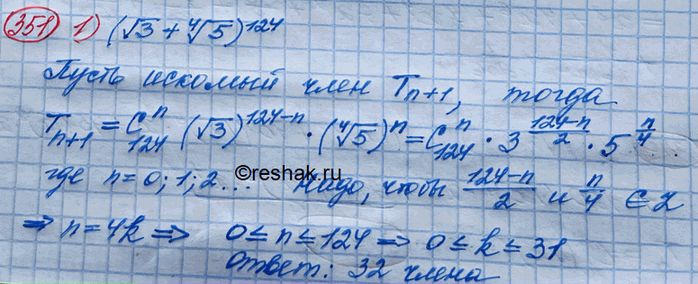 351 1) (√3 + ∜5)^124
Пусть искомый член T_{n+1}, тогда
T_{n+1} = C_{124}^n (√3)^{124-n} · (∜5)^n = C_{124}^n · 3^{\frac{124-n}{2}} · 5^{\frac{n}{4}}
где n = 0; 1; 2... Надо, чтобы \frac{124-n}{2} и \frac{n}{4} ∈ Z
©reshak.ru
⇒ n = 4k ⇒ 0 ≤ n ≤ 124 ⇒ 0 ≤ k ≤ 31
Ответ: 32 члена